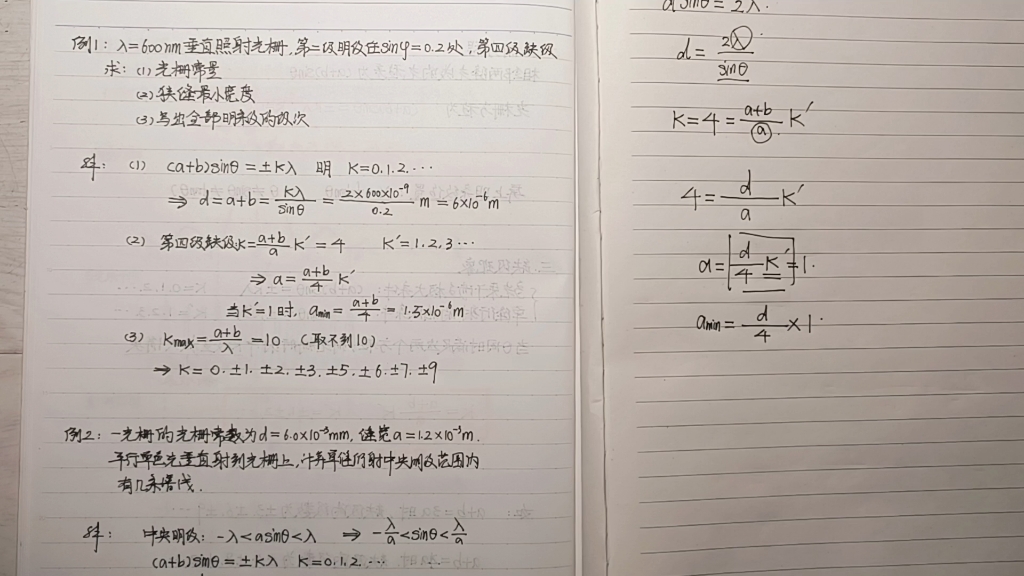 例1: λ=600nm垂直照射光栅,第二级明纹在sinφ=0.2处,第四级缺级
求: (1) 光栅常量
(2) 狭缝最小宽度
(3) 写出全部明条纹的级次
解: (1) (a+b)sinθ=±kλ 明 K=0.1.2.…
⇒ d=a+b=kλ/sinθ=2×600×10⁻⁹/0.2 m=6×10⁻⁶m
(2) 第四级缺级K=a+b/a K′=4 K′=1.2.3…
⇒ a=a+b/4 K′
当K′=1时, amin=a+b/4=1.5×10⁻⁶m
(3) Kmax=a+b/λ=10 (取不到10)
⇒ K=0.±1.±2.±3.±5.±6.±7.±9
例2: 一光栅的光栅常数为d=6.0×10⁻³mm, 缝宽a=1.2×10⁻³m.
平行单色光垂直射到光栅上,计算单缝衍射中央明纹范围内
有几条谱线.
解: 中央明纹: -λ<asinθ<λ ⇒ -λ/a<sinθ<λ/a
(a+b)sinθ=±kλ K=0.1.2.…
dsinθ=2λ.
d=2λ/sinθ
K=4=a+b/a K′
4=d/a K′
a=d/4 K′=1.
amin=d/4×1.